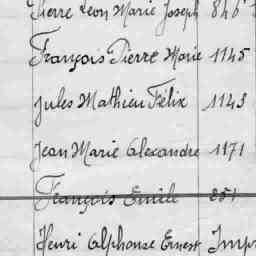 Pierre Léon Marie Joseph 846
François Pierre Marie 1145
Jules Mathieu Félix 1143
Jean Marie Alexandre 1171
François Emile 851
Henri Alphonse Ernest Impr